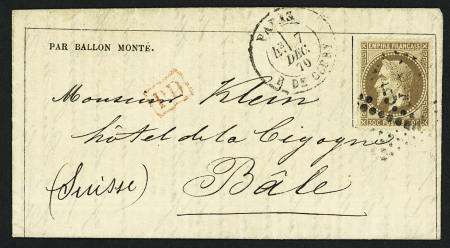 PAR BALLON MONTÉ.
PARIS
7
DEC.
70
EMPIRE FRANÇAIS
PD
Monsieur Klein
hôtel de la Cigogne
(Suisse) Bâle